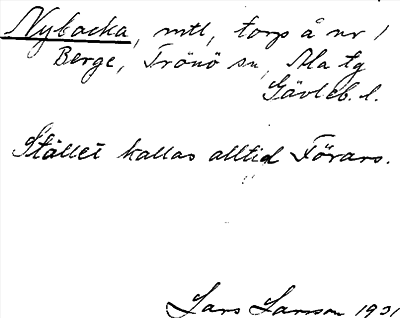 Nybacka, mtl, torp å nr 1
Berge, Trönö sn, Ala tg
Gävleb. l.
Stället kallas alltid Förars.
Lars Larsson 1931